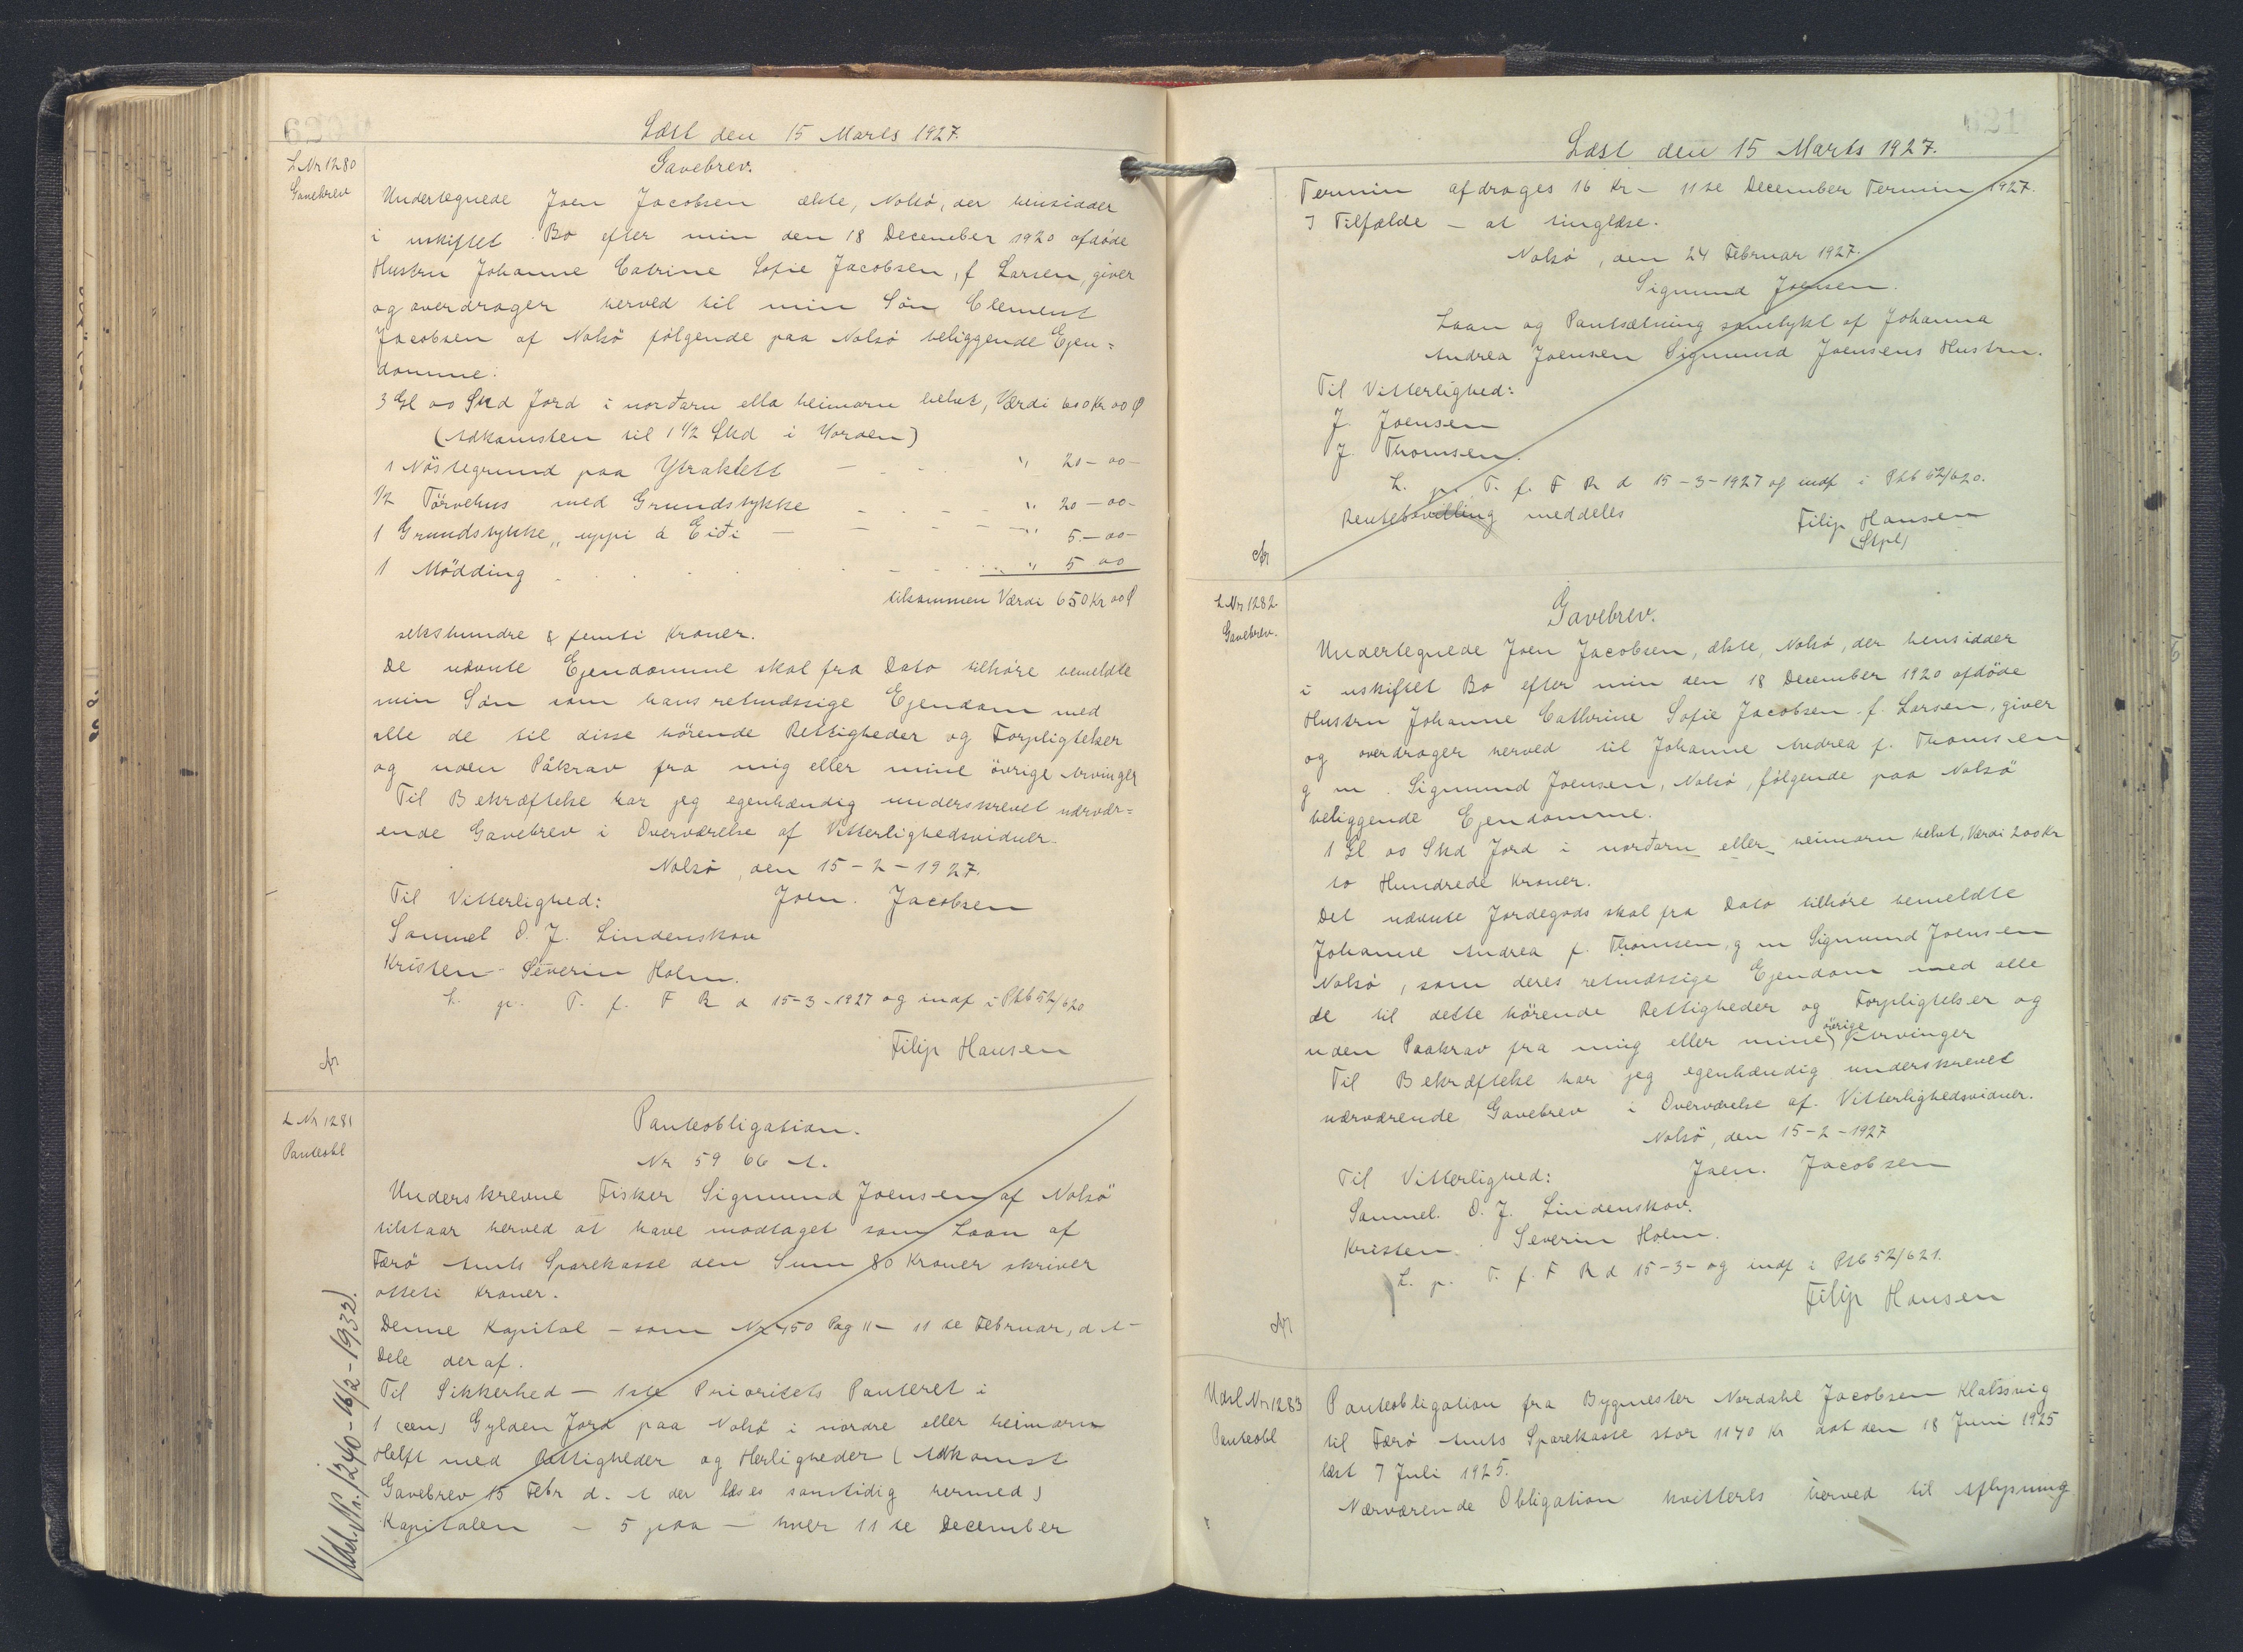 Læst den 15 Marts 1927.
L Nr 1280
Gavebrev
Gavebrev.
Undertegnede Joen Jacobsen ældre, Nolsö, der hensidder
i uskiftet Bo efter min den 18 December 1920 afdöde
Hustru Johanne Catrine Sofie Jacobsen, f Larsen, giver
og overdrager herved til min Sön Clement
Jacobsen af Nolsö fölgende paa Nolsö beliggende Ejen=
domme:
3 Gl 00 Skd Jord i norðaru ella heimaru helvt, Værdi 600 Kr 00 Ø
(Adkomsten til 1 1/2 Skd i Orden)
1 Nöstegrund paa Ytraklett — " 20 – 00 –
1/2 Törvehus med Grundstykke – – – " 20 – 00 –
1 Grundstykke „ uppi á Eiði — – – – " 5 – 00 –
1 Mödding . . . . – – . . " 5 00
tilsammen Værdi 650 Kr 00 Ø
sekshundre & femti Kroner.
De nævnte Ejendomme skal fra Dato tilhöre bemeldte
min Sön som hans retmæssige Ejendom med
alle de til disse hörende Rettigheder og Forpligtelser
og uden Påkrav fra mig eller mine övrige Arvinger
Til Bekræftelse har jeg egenhændig underskrevet nærvær=
ende Gavebrev i Overværelse af Vitterlighedsvidner.
Nolsö, den 15 – 2 – 1927.
Til Vitterlighed: Joen. Jacobsen
Samuel O. J. Lindenskov
Kristen Severin Holm.
L. p. T. f. F R d 15 – 3 – 1927 og indf i Ptb 52/620
Filip Hansen
L Nr 1281
Panteobl
Panteobligation.
Nr 59 66 A.
Underskrevne Fisker Sigmund Joensen af Nolsö
tilstaar herved at have modtaget som Laan af
Færö Amts Sparekasse den Sum 80 Kroner skriver
otteti Kroner.
Denne Kapital – som Nr 450 Pag 11 – 11 te Februar, d A –
Dele deraf.
Til Sikkerhed – 1ste Prioritets Panteret i
1 (een) Gylden Jord paa Nolsö i nordre eller heimaru
Helft med Rettigheder og Herligheder (Adkomst
Gavebrev 15 Febr d. A der læses samtidig hermed)
Kapitalen – 5 paa – hver 11 te December
Udsl. Nr. 1240 – 16/2 – 1932.
Læst den 15 Marts 1927.
Termin afdrages 16 Kr – 11 te December Termin 1927.
I Tilfælde – at tinglæse.
Nolsö, den 24 Februar 1927.
Sigmund Joensen.
Laan og Pantsætning samtykt af Johanna
Andrea Joensen Sigmund Joensens Hustru.
Til Vitterlighed:
J. Joensen
J. Thomsen.
L. p. T. f. F R d 15 – 3 – 1927 og indf i Ptb 52/620.
Rentebevilling meddeles
Filip Hansen
(Stpl)
L Nr 1282
Gavebrev.
Gavebrev.
Undertegnede Joen Jacobsen, ældre, Nolsö, der hensidder
i uskiftet Bo efter min den 18 December 1920 afdöde
Hustru Johanne Cathrine Sofie Jacobsen f. Larsen, giver
og overdrager herved til Johanne Andrea f. Thomsen
g m. Sigmund Joensen, Nolsö, fölgende paa Nolsö
beliggende Ejendomme.
1 Gl 00 Skd Jord i norðaru eller heimaru helvt, Værdi 200 Kr
to Hundrede Kroner.
Det nævnte Jordegods skal fra Dato tilhöre bemeldte
Johanne Andrea f. Thomsen, g m Sigmund Joensen
Nolsö, som deres retmæssige Ejendom med alle
de til dette hörende Rettigheder og Forpligtelser og
uden Paakrav fra mig eller mine övrige Arvinger
Til Bekræftelse har jeg egenhændig underskrevet
nærværende Gavebrev i Overværelse af Vitterlighedsvidner.
Nolsö, den 15 – 2 – 1927
Til Vitterlighed: Joen. Jacobsen
Samuel. O. J. Lindenskov.
Kristen. Severin Holm.
L. p. T. f. F R d 15 – 3 – og indf i Ptb 52/621.
Filip Hansen
Udsl Nr. 1283
Panteobl
Panteobligation fra Bygmester Nordahl Jacobsen Klaksvig
til Færö Amts Sparekasse stor 1140 Kr dat den 18 Juni 1925
læst 7 Juli 1925.
Nærværende Obligation kvitteres herved til Aflysning